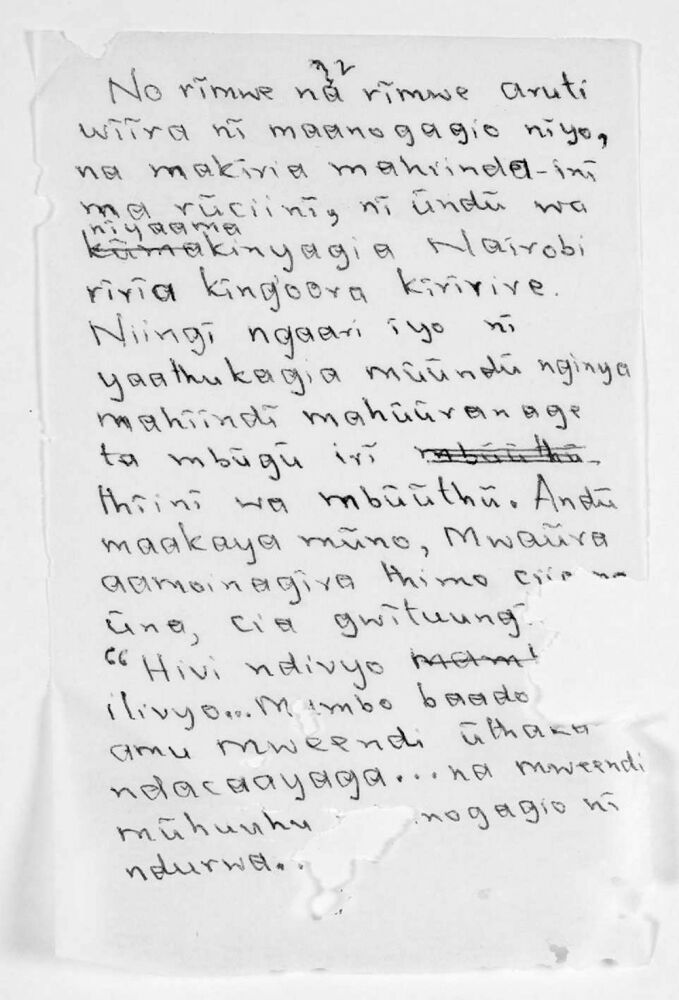 32
No rĩmwe na rĩmwe aruti
wĩĩra nĩ maanogagio nĩyo,
na makĩria mahiinda-inĩ
ma rũciinĩ, nĩ ũndũ wa
nĩyaama
kũmakinyagia Nairobi
rĩrĩa kĩng'oora kĩrĩrire.
Niingĩ ngaari ĩyo nĩ
yaathukagia mũũndũ nginya
mahĩndĩ mahũũranage
ta mbũgũ irĩ mbũũthũ
thĩinĩ wa mbũũthũ. Andũ
maakaya mũno, Mwaũra
aamoinagĩra thimo
ũna, cia gwĩtuung
"Hivi ndivyo mam
ilivyo... Mambo baado
amu mweendi ũthaka
ndacaayaga... na mweendi
mũhuuhu nogagio nĩ
ndurwa..